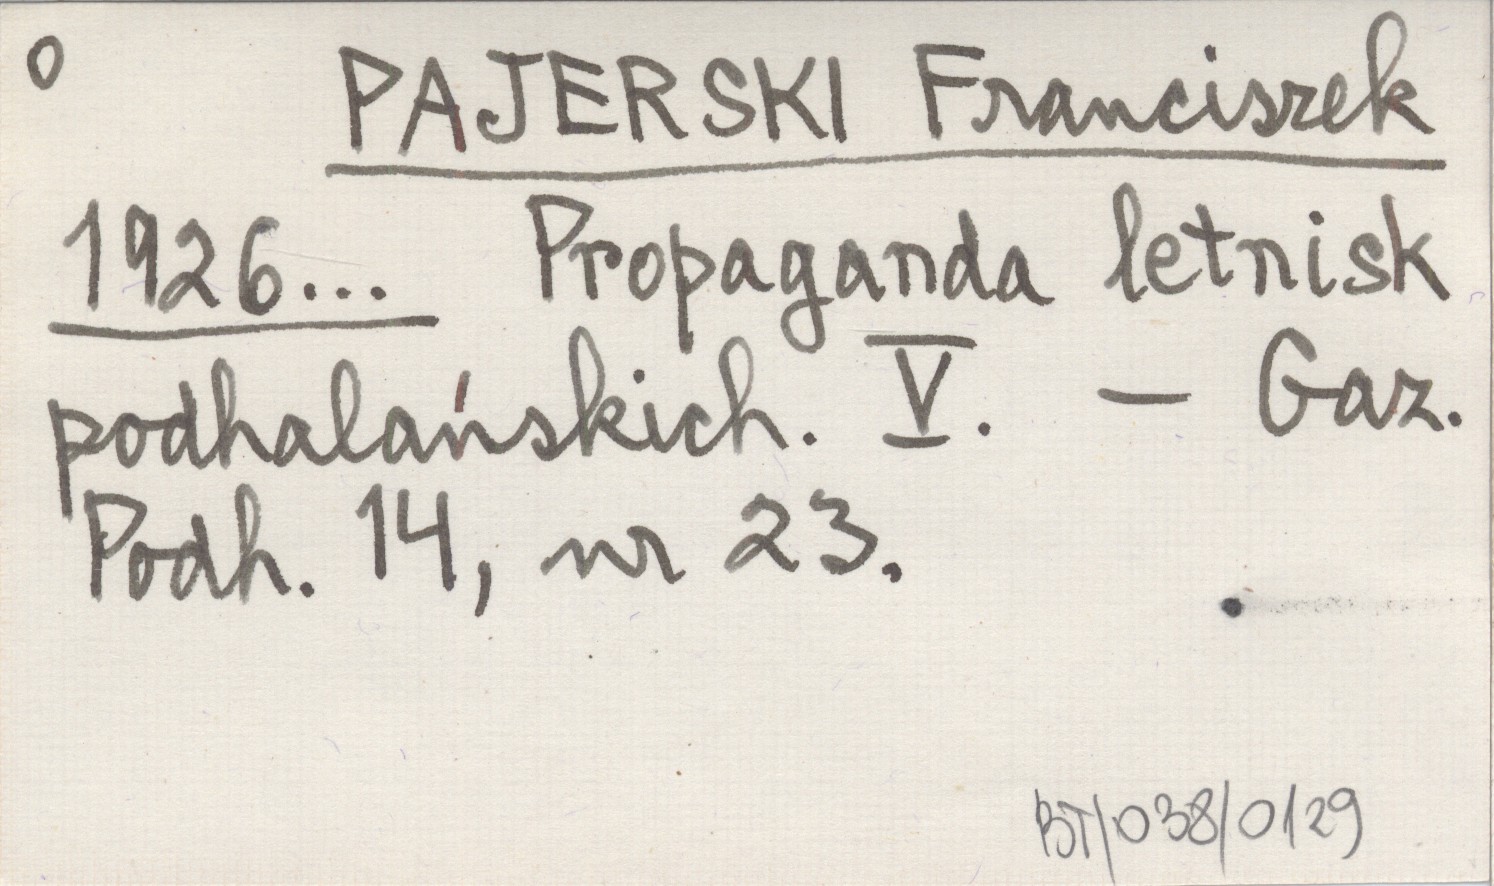 o PAJERSKI Franciszek
1926... Propaganda letnisk
podhalańskich. V. — Gaz.
Podh. 14, nr 23.
BT/038/0129